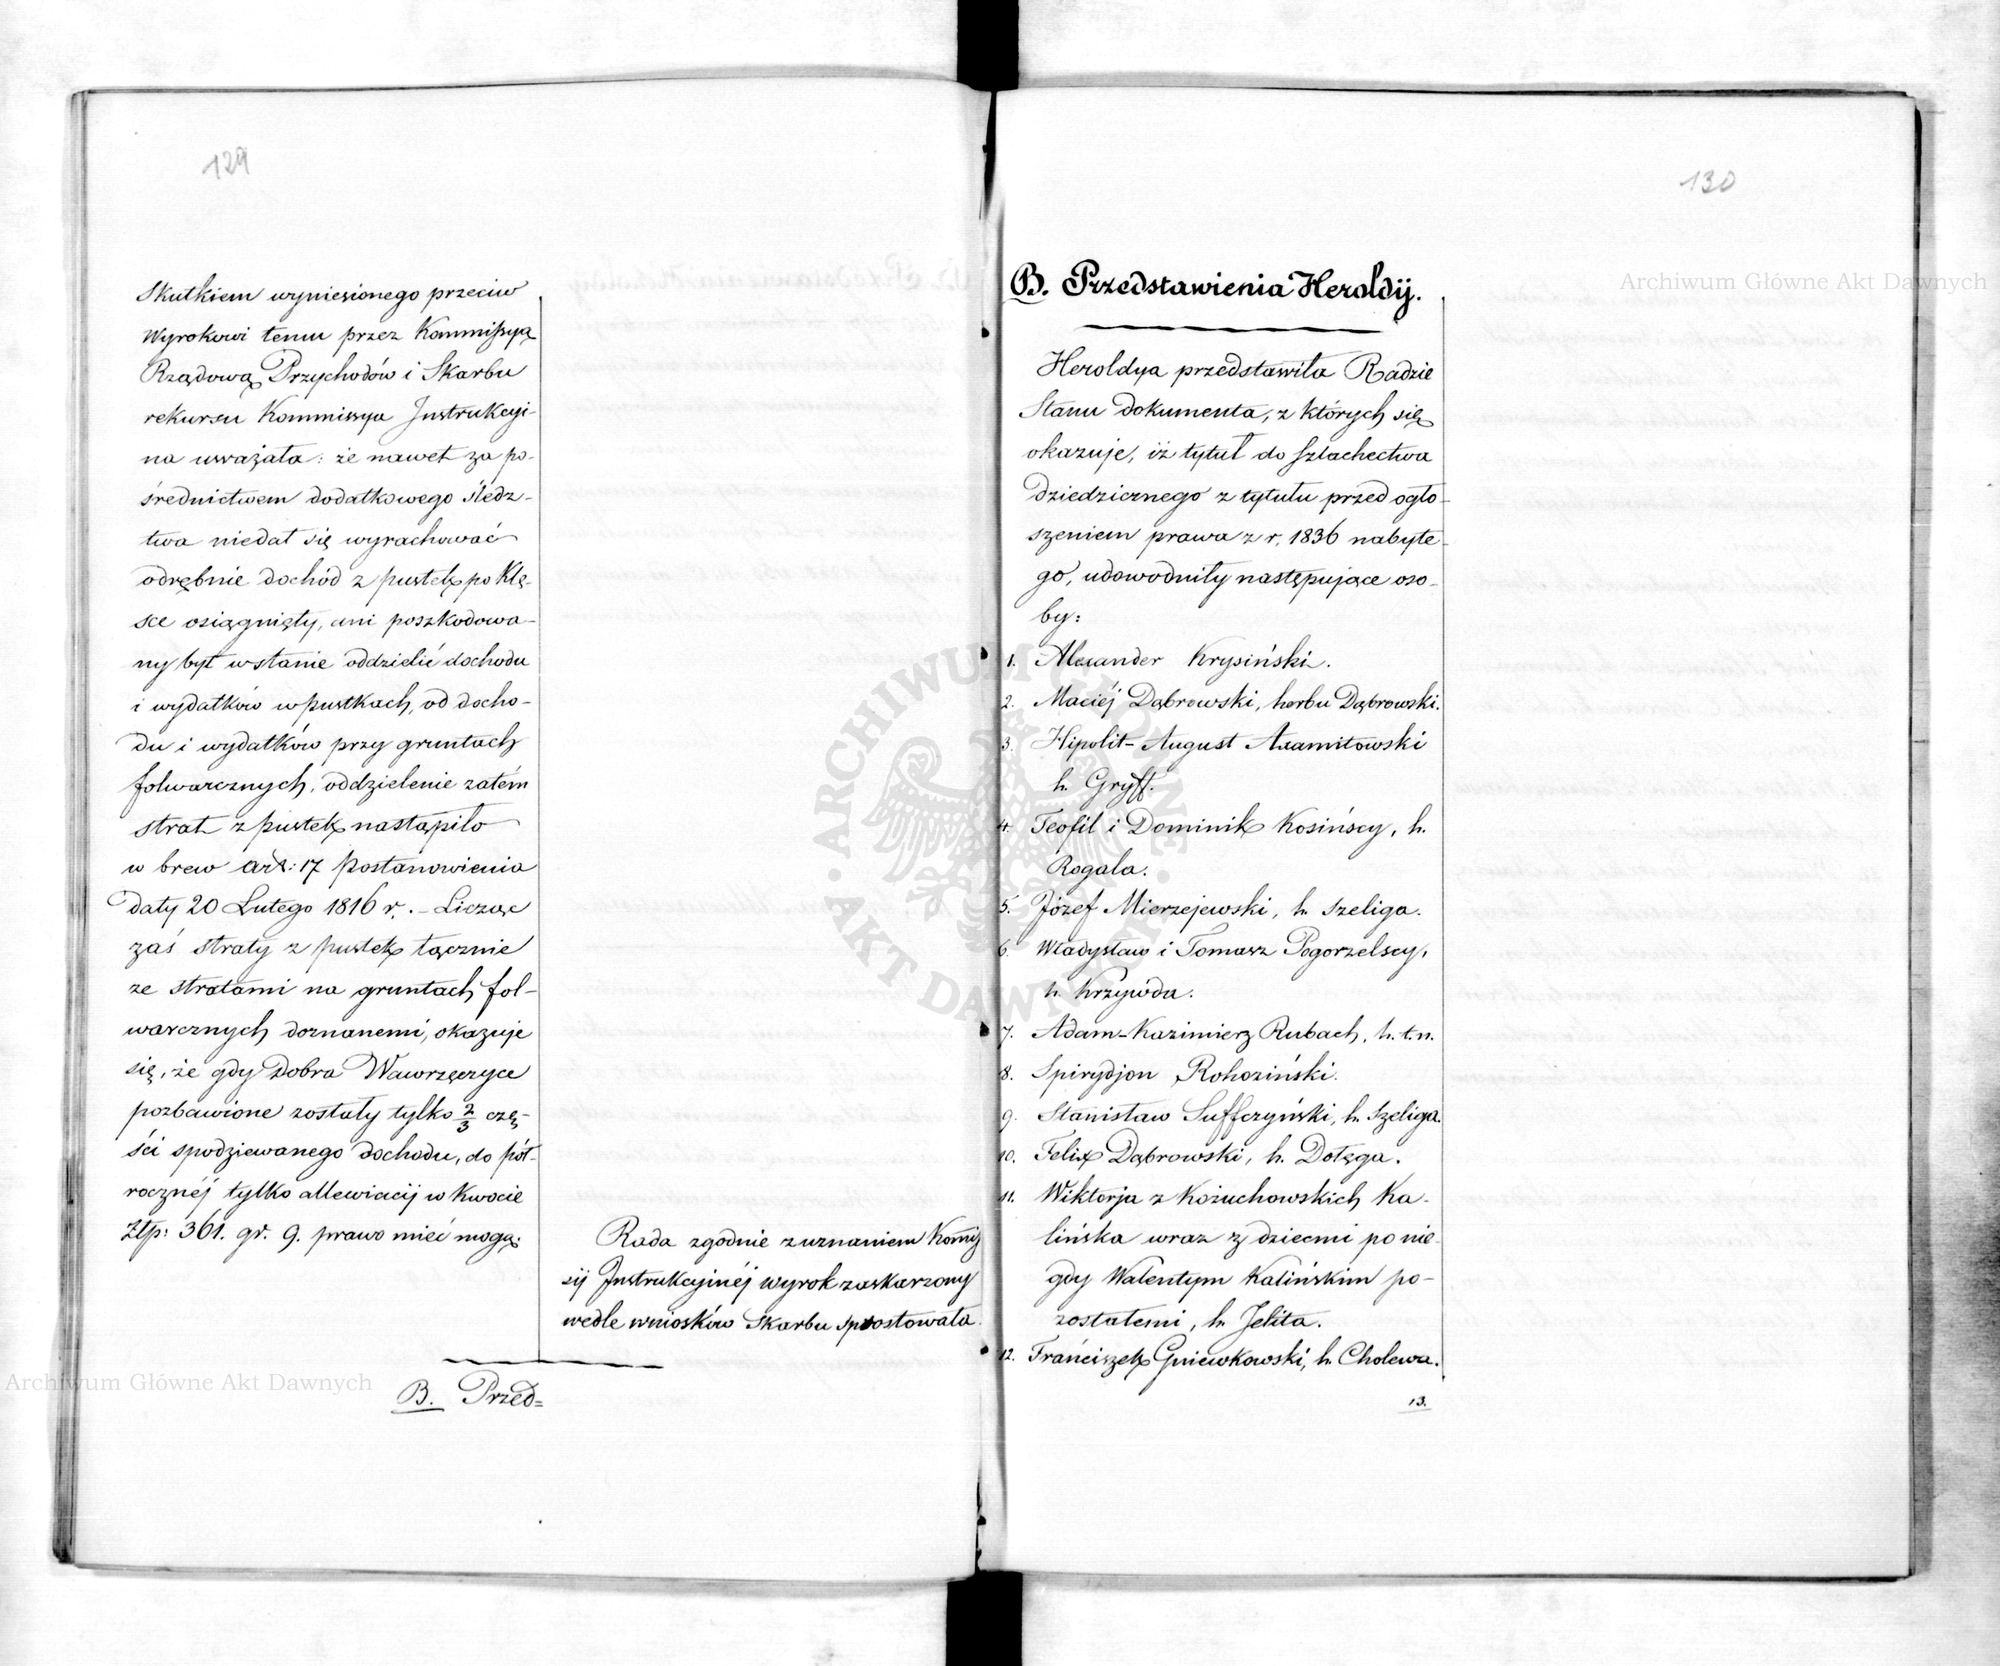 129
Skutkiem wyniesionego przeciw
Wyrokowi temu przez Kommissyą
Rządową Przychodów i Skarbu
rekursu Kommissya Instrukcyi-
na uważała: że nawet za po-
średnictwem dodatkowego śledz-
twa niedał się wyrachować
odrębnie dochód z pustek po Klę-
sce osiągnięty, ani poszkodowa-
ny był w stanie oddzielić dochodu
i wydatków w pustkach, od docho-
du i wydatków przy gruntach
folwarcznych, oddzielenie zatém
strat z pustek nastąpiło
w brew art: 17 postanowienia
daty 20 Lutego 1816 r. – Licząc
zaś straty z pustek łącznie
ze stratami na gruntach fol-
warcznych doznanemi, okazuje
się, że gdy Dobra Wawrzęczyce
pozbawione zostały tylko 2/3 czę-
ści spodziewanego dochodu, do pół-
rocznéj tylko allewiacij w kwocie
Złp: 361. gr. 9. prawo mieć mogą.
Rada zgodnie z uznaniem Komis
sij Instrukcyjnéj wyrok zaskarzony
wedle wniosków Skarbu sprostowała.
B. Przed=
130
B. Przedstawienia Heroldij.
Heroldya przedstawiła Radzie
Stanu dokumenta, z których się
okazuje, iż tytuł do szlachectwa
dziedzicznego z tytułu przed ogło-
szeniem prawa z r. 1836 nabyte-
go, udowodniły następujące oso-
by:
1. Alexander Krysiński.
2. Maciéj Dąbrowski, herbu Dąbrowski.
3. Hipolit-August Axamitowski
h. Gryff.
4. Teofil i Dominik Kosińscy, h.
Rogala.
5. Józef Mierzejewski, h. Szeliga.
6. Władysław i Tomasz Pogorzelscy,
h. Krzywda.
7. Adam-Kazimierz Rubach, h. t. n.
8. Spirydjon Rohoziński.
9. Stanisław Suffczyński, h. Szeliga.
10. Felix Dąbrowski, h. Dołęga.
11. Wiktorja z Kożuchowskich Ka-
lińska wraz z dziećmi po nie-
gdy Walentym Kalińskim po-
zostałemi, h. Jelita.
12. Franciszek Gniewkowski, h. Cholewa.
13.
Archiwum Główne Akt Dawnych
Archiwum Główne Akt Dawnych
ARCHIWUM GŁÓWNE AKT DAWNYCH